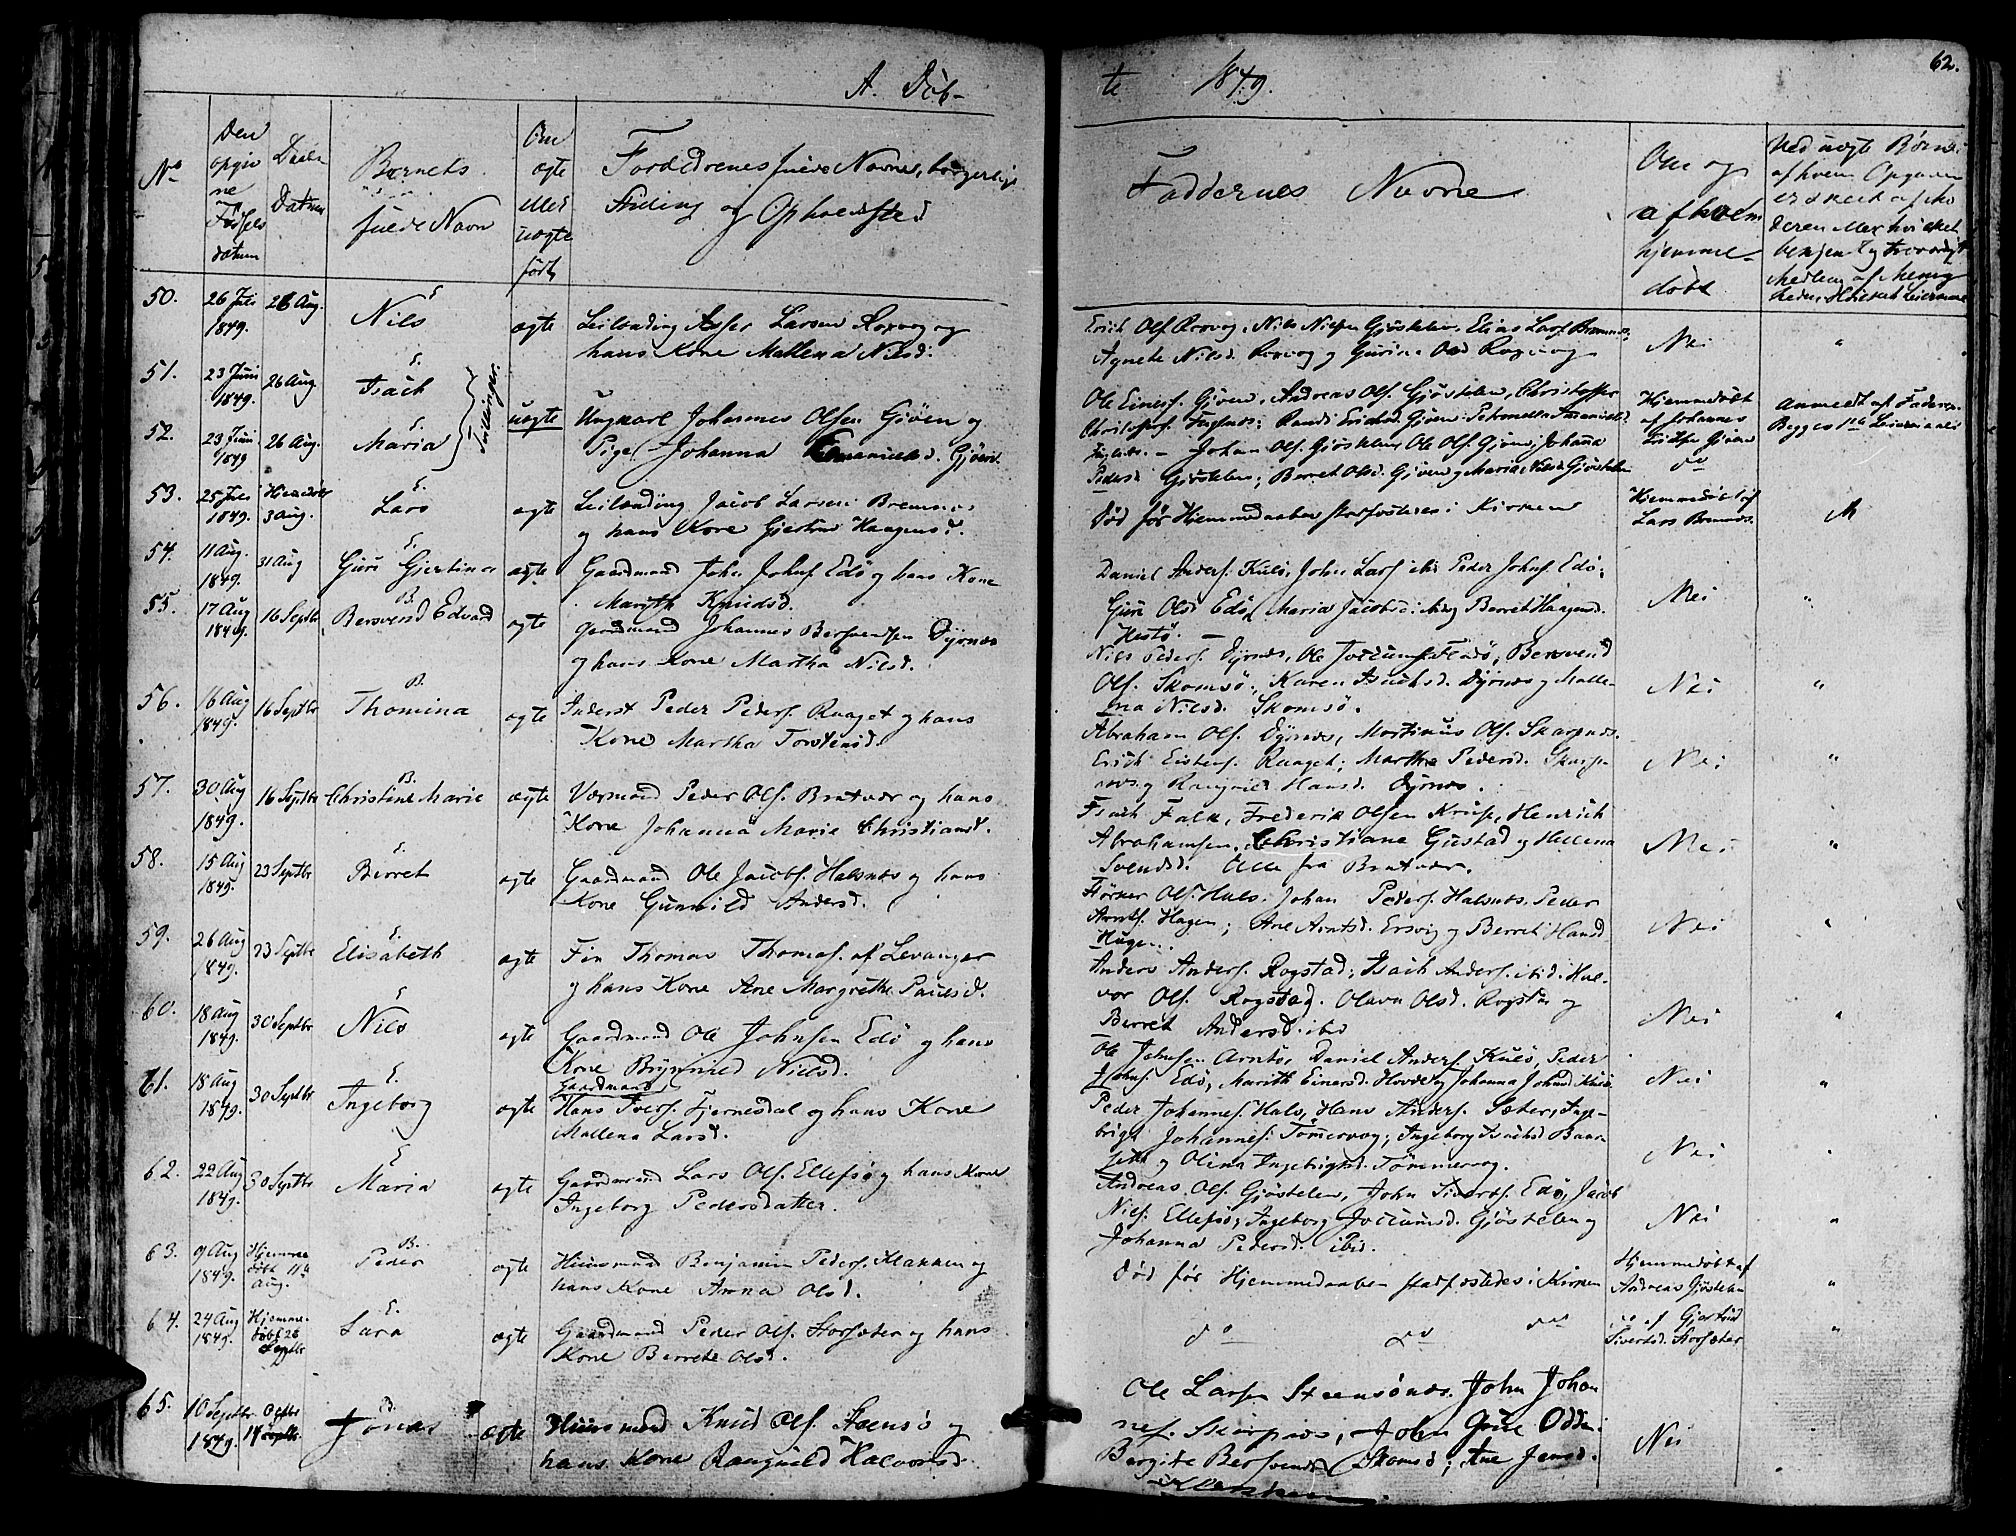 A. Døb-
te 1849.
62.
No
Den opgivne Fødsels datum
Daabs Datum
Barnets fulde Navn
Om ægte eller uægte født
Forældrenes fulde Navne, borgerlige
Stilling og Opholdsted
Faddernes Navne
Om og af hvem hjemme-døbt
Ved uægte Børn
af hvem Opgaven
er skeet
50. 26 Juli 1849. 26 Aug. Nils ægte Leilænding Asser Larsen Roxvog og
hans Kone Mallena Nilsd.
Erich Ols. Roxvog, Nils Nielsen Gjøstelen, Elias Lars. Bremnes,
Agnete Nilsd. Roxvog og Gurine Olsd Roxvog
Nei "
51. 23 Juni 1849. 26 Aug. Isach
Tvillinger.
52. 23 Juni 1849 26 Aug. Maria uægte Ungkarl Johannes Olsen Gjøen og
Pige Johanna Emanuelsd. Gjøen.
Ole Einers. Gjøen, Andreas Ols. Gjøstelen, Christoffer
Christophers. Fuglnes; Randi Erichsd. Gjøen, Petronella Emanuelsd.
Fuglnes. – Johan Ols. Gjøstelen, Ole Ols. Gjøen, Johanna
Pedersd. Gjøstelen, Berret Olsd. Gjøen og Maria Nilsd. Gjøstelen
Hjemmedøbt
af Johannes
Erichsen Gjøen
do
Anmeldt af Faderen.
Begges 1ste Leiermaal
53. 25 Juli 1849. Hjemdøbt 3 Aug. Lars ægte Leilænding Jacob Larsen Bremnes
og hans Kone Gjertrud Haagensd.
død før Hjemmedaaben stadfæstedes i Kirken
Hjemmedøbt af
Lars Bremnes.
54. 11 Aug. 1849. 31 Aug Guri Gjertina ægte Gaardmand John Johns. Edø og hans Kone
Marith Knudsd.
Daniel Anders. Kulø, John Lars. ibid Peder Johns. Edø,
Guri Olsd Edø, Maria Jacobsd. ibid og Berret Haagensd.
Hestø. –
Nei "
55. 17 Aug 1849. 16 Septbr Bersvend Edvard ægte Gaardmand Johannes Bersvendsen Dyrnes
og hans Kone Martha Nilsd.
Nils Peders. Dyrnes, Ole Jocums. Fladø, Bersvend
Ols. Skomsø, Karen Isachsd. Dyrnes og Malle-
na Nilsd. Skomsø.
Nei "
56. 16 Aug 1849. 16 Septbr Thomina ægte Inderst Peder Peders. Raaget og hans
Kone Martha Torstensd.
Abraham Ols. Dyrnes, Mortinus Ols. Skarpnes.
Erich Eistens. Raaget, Martha Pedersd. Skarp-
nes og Rangnild Hansd. Dyrnes.
Nei "
57. 30 Aug 1849. 16 Septbr Christine Marie ægte Værmand Peder Ols. Bratvær og hans
Kone Johanna Maria Christiansd.
Isach Falk, Frederik Olsen Kruse, Henrich
Abrahamsen, Christiane Gustad og Hellena
Svendsd. Alle fra Bratvær.
Nei "
58. 15 Aug 1849. 23 Septbr Berret ægte Gaardmand Ole Jacobs. Halsnes og hans
Kone Gunnild Andersd.
Størker Ols. Hals. Johan Peders. Halsnes. Peder
Arnts. Hagen; Ane Arntsd. Ersvig og Berret Hansd
Hagen.
Nei "
59. 26 Aug 1849. 23 Septbr Elisabeth ægte Fin Thomas Thomas. af Levanger
og hans Kone Ane Margrethe Paulsd.
Anders Anders. Rogstad; Isach Anders. ibid. Hal-
vor Ols. Rogstad. Olava Olsd. Rogstad og
Berret Andersd. ibid
Nei "
60. 18 Aug 1849. 30 Septbr Nils ægte Gaardmand Ole Johnsen Edø og hans
Kone Brynnild Nielsd.
Ole Johnsen Arntø, Daniel Anders. Kulø, Peder
Johns. Edø, Marith Einersd. Hovde og Johanna Johnsd Kulø
Nei "
61. 18 Aug 1849. 30 Septbr Ingeborg ægte Gaardmand
Hans Ivers. Fjernesdal og hans Kone
Mallena Larsd.
Peder Johannes. Hals, Hans Anders. Sæter, Inge-
brigt Johannes. Tømervog; Ingeborg Isachsd Baar-
set og Olina Ingebrigtsd. Tømmervog.
Nei "
62. 22 Aug 1849. 30 Septbr Maria ægte Gaardmand Lars Ols. Ellefsø og hans Kone
Ingeborg Pedersdatter.
Andreas Ols. Gjøstelen, John Siverts. Edø, Jacob
Nils. Ellefsø, Ingeborg Jocumsd. Gjøstelen og
Johanna Pedersd. ibid.
Nei "
63. 9 Aug 1849. Hjemme døbt 11te Aug. Peder ægte Huusmand Benjamin Peders. Hakken og
hans Kone Anna Olsd.
død før Hjemmedaaben stadfæstedes i Kirken
Hjemmedøbt af
Andreas Gjøstelen "
64. 24 Aug 1849. Hjemme-døbt 26 Septbr Lara ægte Gaardmand Peder Ols. Storsæter og hans
Kone Berrete Olsd.
do do do
do af Gjertrud
Sivertsd. Storsæter "
65. 10 Septbr. 1849. 14 Octbr Jonas ægte Huusmand Knud Ols. Steensø og
hans Kone Rangnild Halvorsd.
Ole Larsen Steensønes. John Johan
nes. Skarpnes, John Odde,
Birgite Bersvendsd. Skomsø; Ane Jensd.
Nei